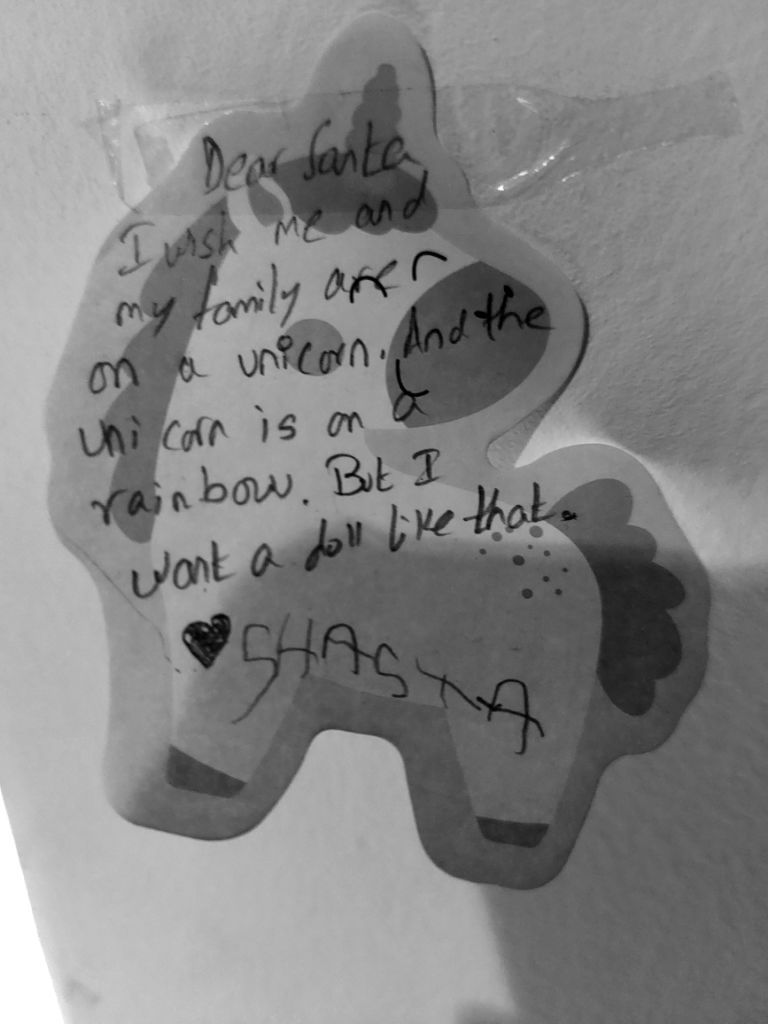 Dear Santa
I wish me and
my family are
on a unicorn. And the
unicorn is on a
rainbow. But I
want a doll like that.
♥SHASTA